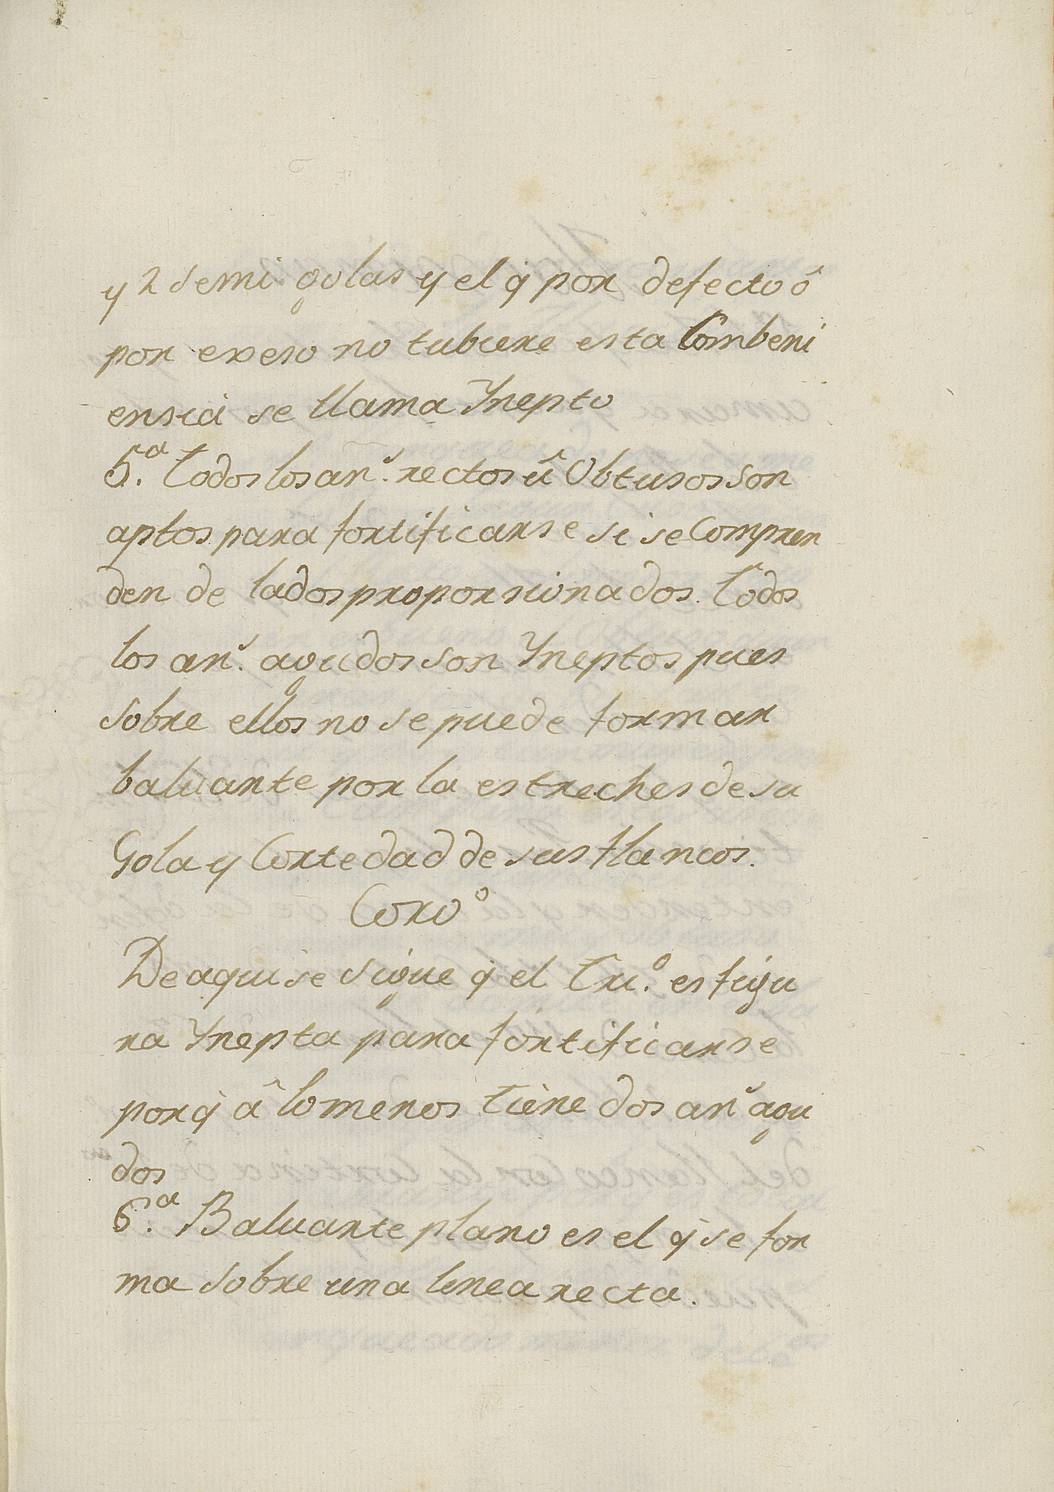 y 2 semi golas y el q̃ por defecto ô
por exeso no tubiere esta Combeni
ensia se llama Ynepto
5.ª Todos los an.ˢ rectos û Obtusos son
aptos para fortificarse si se Compren
den de lados proporsionados. Todos
los an.ˢ agudos son Yneptos pues
sobre ellos no se puede formar
baluarte por la estreches de su
Gola y Cortedad de sus flancos.
Coro.º
De aqui se sigue q̃ el Tri.º es figu
ra Ynepta para fortificarse
porq̃ â lo menos tiene dos an.ˢ agu
dos
6.ª Baluarte plano es el q̃ se for
ma sobre una linea recta.